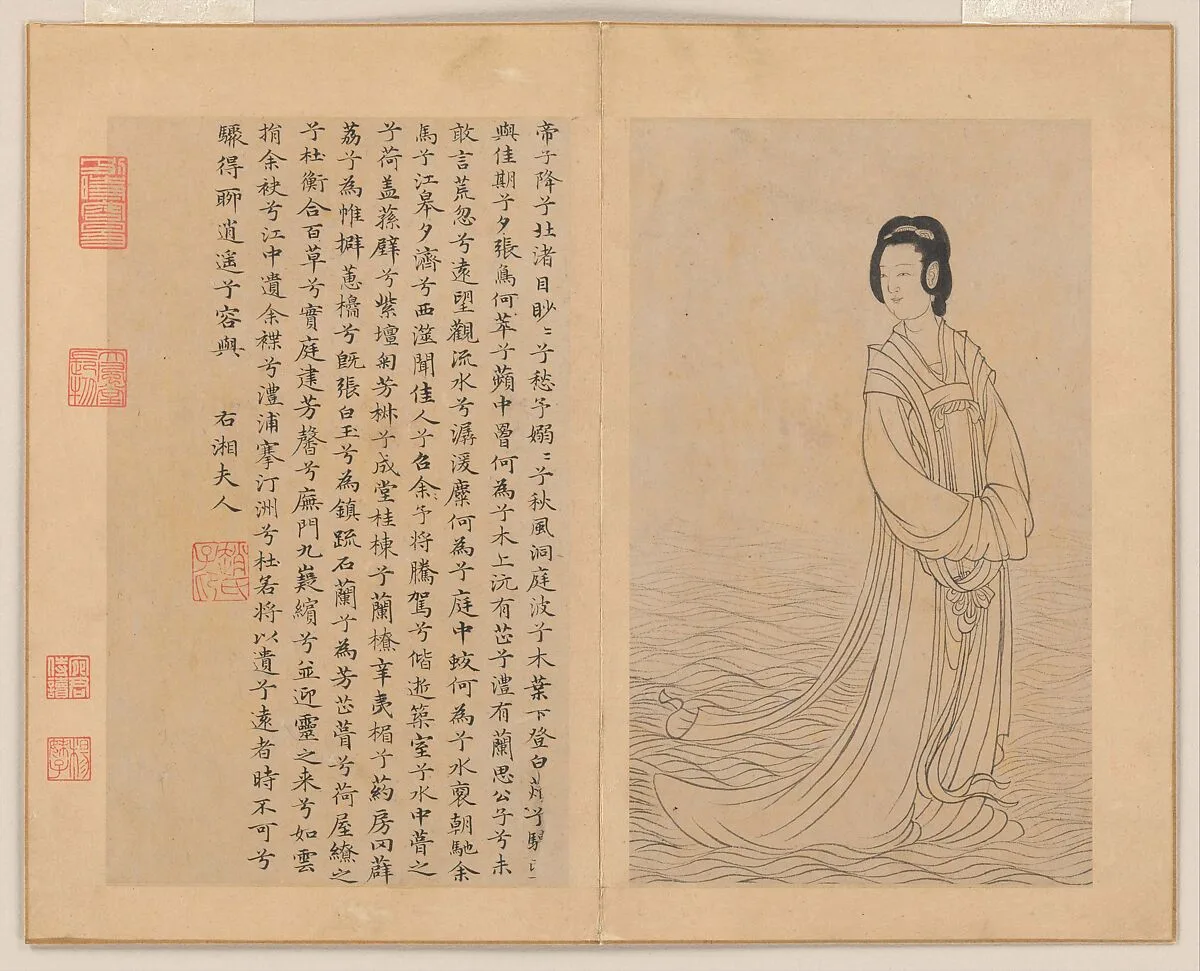 帝子降兮北渚目眇〻兮愁予嫋〻兮秋風洞庭波兮木葉下登白薠兮騁
與佳期兮夕張鳥何萃兮蘋中罾何為兮木上沅有芷兮澧有蘭思公子兮未
敢言荒忽兮遠望觀流水兮潺湲麋何為兮庭中蛟何為兮水裔朝馳余
馬兮江皋夕濟兮西澨聞佳人兮召余予将騰駕兮偕逝築室兮水中葺之
兮荷盖蓀壁兮紫壇匊芳椒兮成堂桂棟兮蘭橑辛夷楣兮葯房罔薜
荔兮為帷擗蕙櫋兮既張白玉兮為鎮疏石蘭兮為芳芷葺兮荷屋繚之
兮杜衡合百草兮實庭建芳馨兮廡門九嶷繽兮並迎靈之来兮如雲
捐余袂兮江中遺余褋兮澧浦搴汀洲兮杜若将以遺兮遠者時不可兮
驟得聊逍遥兮容與 右湘夫人